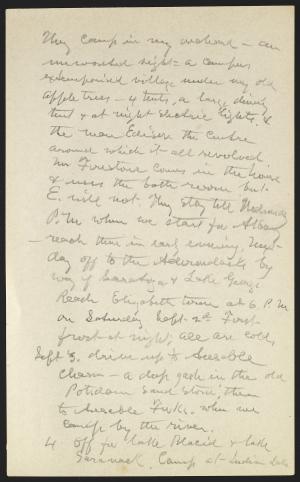 They camp in my orchard – an
unwonted sight – a campers
extemporised village under my old
apple trees – 4 tents, a large dining
tent & at night electric lights, &
the man Edison the centre
around which it all revolved.
Mr Firestone comes in the house
& uses the bath room but
E. will not. They stay till
P.M. when we start for Albany
– reach there in early evening. Next
day off to the Adirondacks by
way of Saratoga & Lake George
Reach Elizabethtown at 6 P.M
on Saturday Sept. 2d First
frost at night, all are cold,
Sept 3, drive up to Ausable
Chasm – a deep gash in the old
Potsdam Sand Stone; then
to Ausable Forks, when we
camp by the river.
4 off for Lake Placid & Lake
Saranack, Camp at Indian Lake